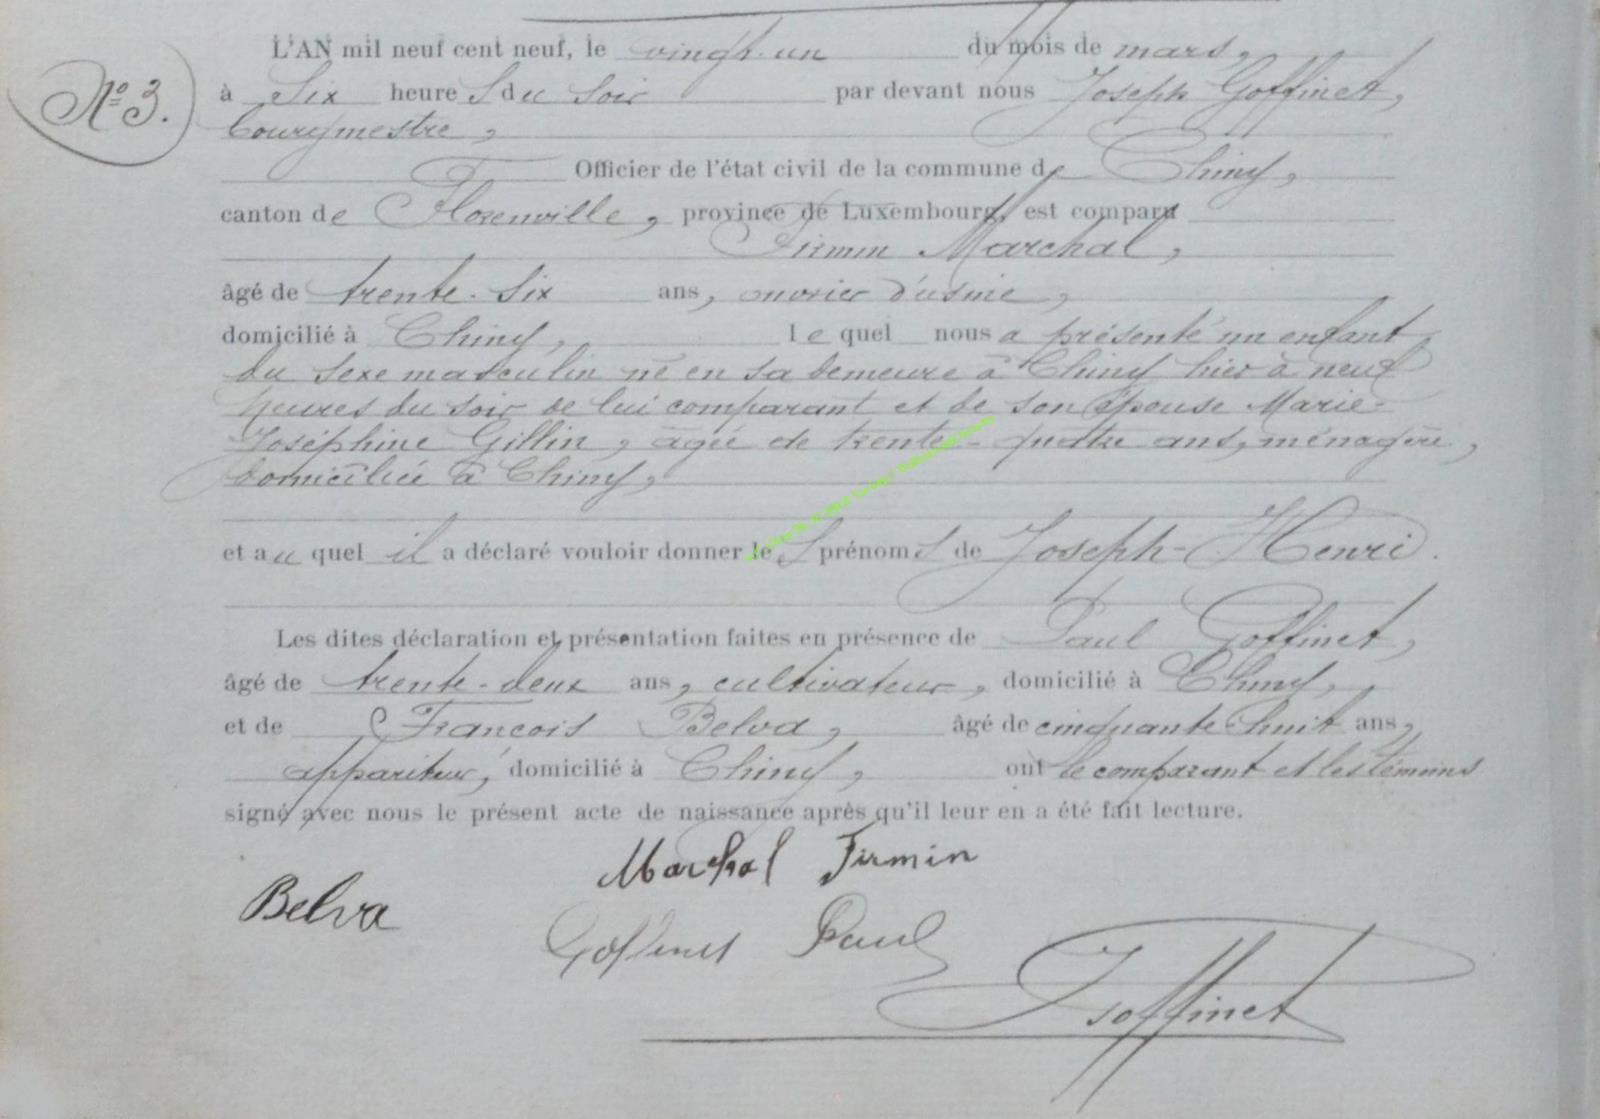 L'AN mil neuf cent neuf, le vingt-un du mois de mars,
N° 3.
à six heures du soir par devant nous Joseph Goffinet,
bourgmestre,
Officier de l'état civil de la commune de Chiny,
canton de Florenville, province de Luxembourg, est comparu
Firmin Marchal,
âgé de trente-six ans, ouvrier d'usine,
domicilié à Chiny, lequel nous a présenté un enfant
du sexe masculin né en sa demeure à Chiny hier à neuf
heures du soir de lui comparant et de son épouse Marie-
Joséphine Gillin, âgée de trente-quatre ans, ménagère,
domiciliée à Chiny,
et auquel il a déclaré vouloir donner les prénoms de Joseph-Henri.
Les dites déclaration et présentation faites en présence de Paul Goffinet,
âgé de trente-deux ans, cultivateur, domicilié à Chiny,
et de François Belva, âgé de cinquante-huit ans,
appariteur, domicilié à Chiny, ont le comparant et les témoins
signé avec nous le présent acte de naissance après qu'il leur en a été fait lecture.
Marchal Firmin
Belva
Goffinet Paul
J Goffinet